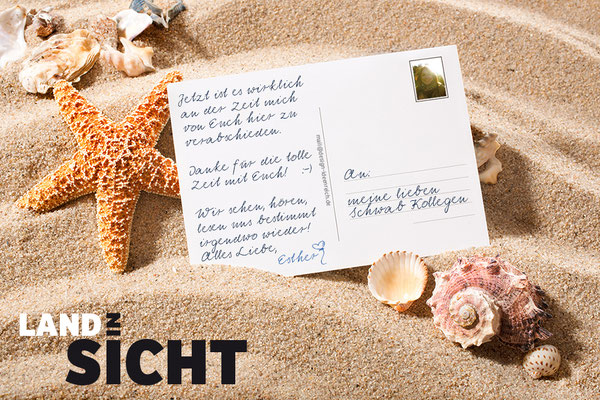 Jetzt ist es wirklich
an der Zeit mich
von Euch hier zu
verabschieden.
Danke für die tolle
Zeit mit Euch! :-)
Wir sehen, hören,
lesen uns bestimmt
irgendwo wieder!
Alles Liebe,
Esther
An:
meine lieben
Schwab Kollegen
LAND IN
SICHT